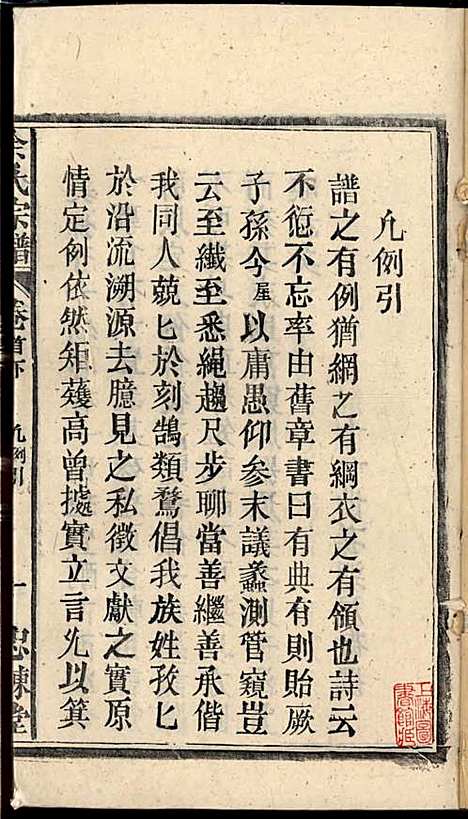 凡例引
譜之有例猶網之有綱衣之有領也詩云
不愆不忘率由舊章書曰有典有則貽厥
子孫今屋以庸愚仰參末議蠡測管窺豈
云至纖至悉繩趨尺步聊當善繼善承偕
我同人兢匕於刻鵠類鶩倡我族姓孜匕
於沿流溯源去臆見之私徵文獻之實原
情定例依然矩蒦高曾據實立言允以箕
余氏宗譜 卷首下 凡例引 一 忠諫堂
上海圖書館藏